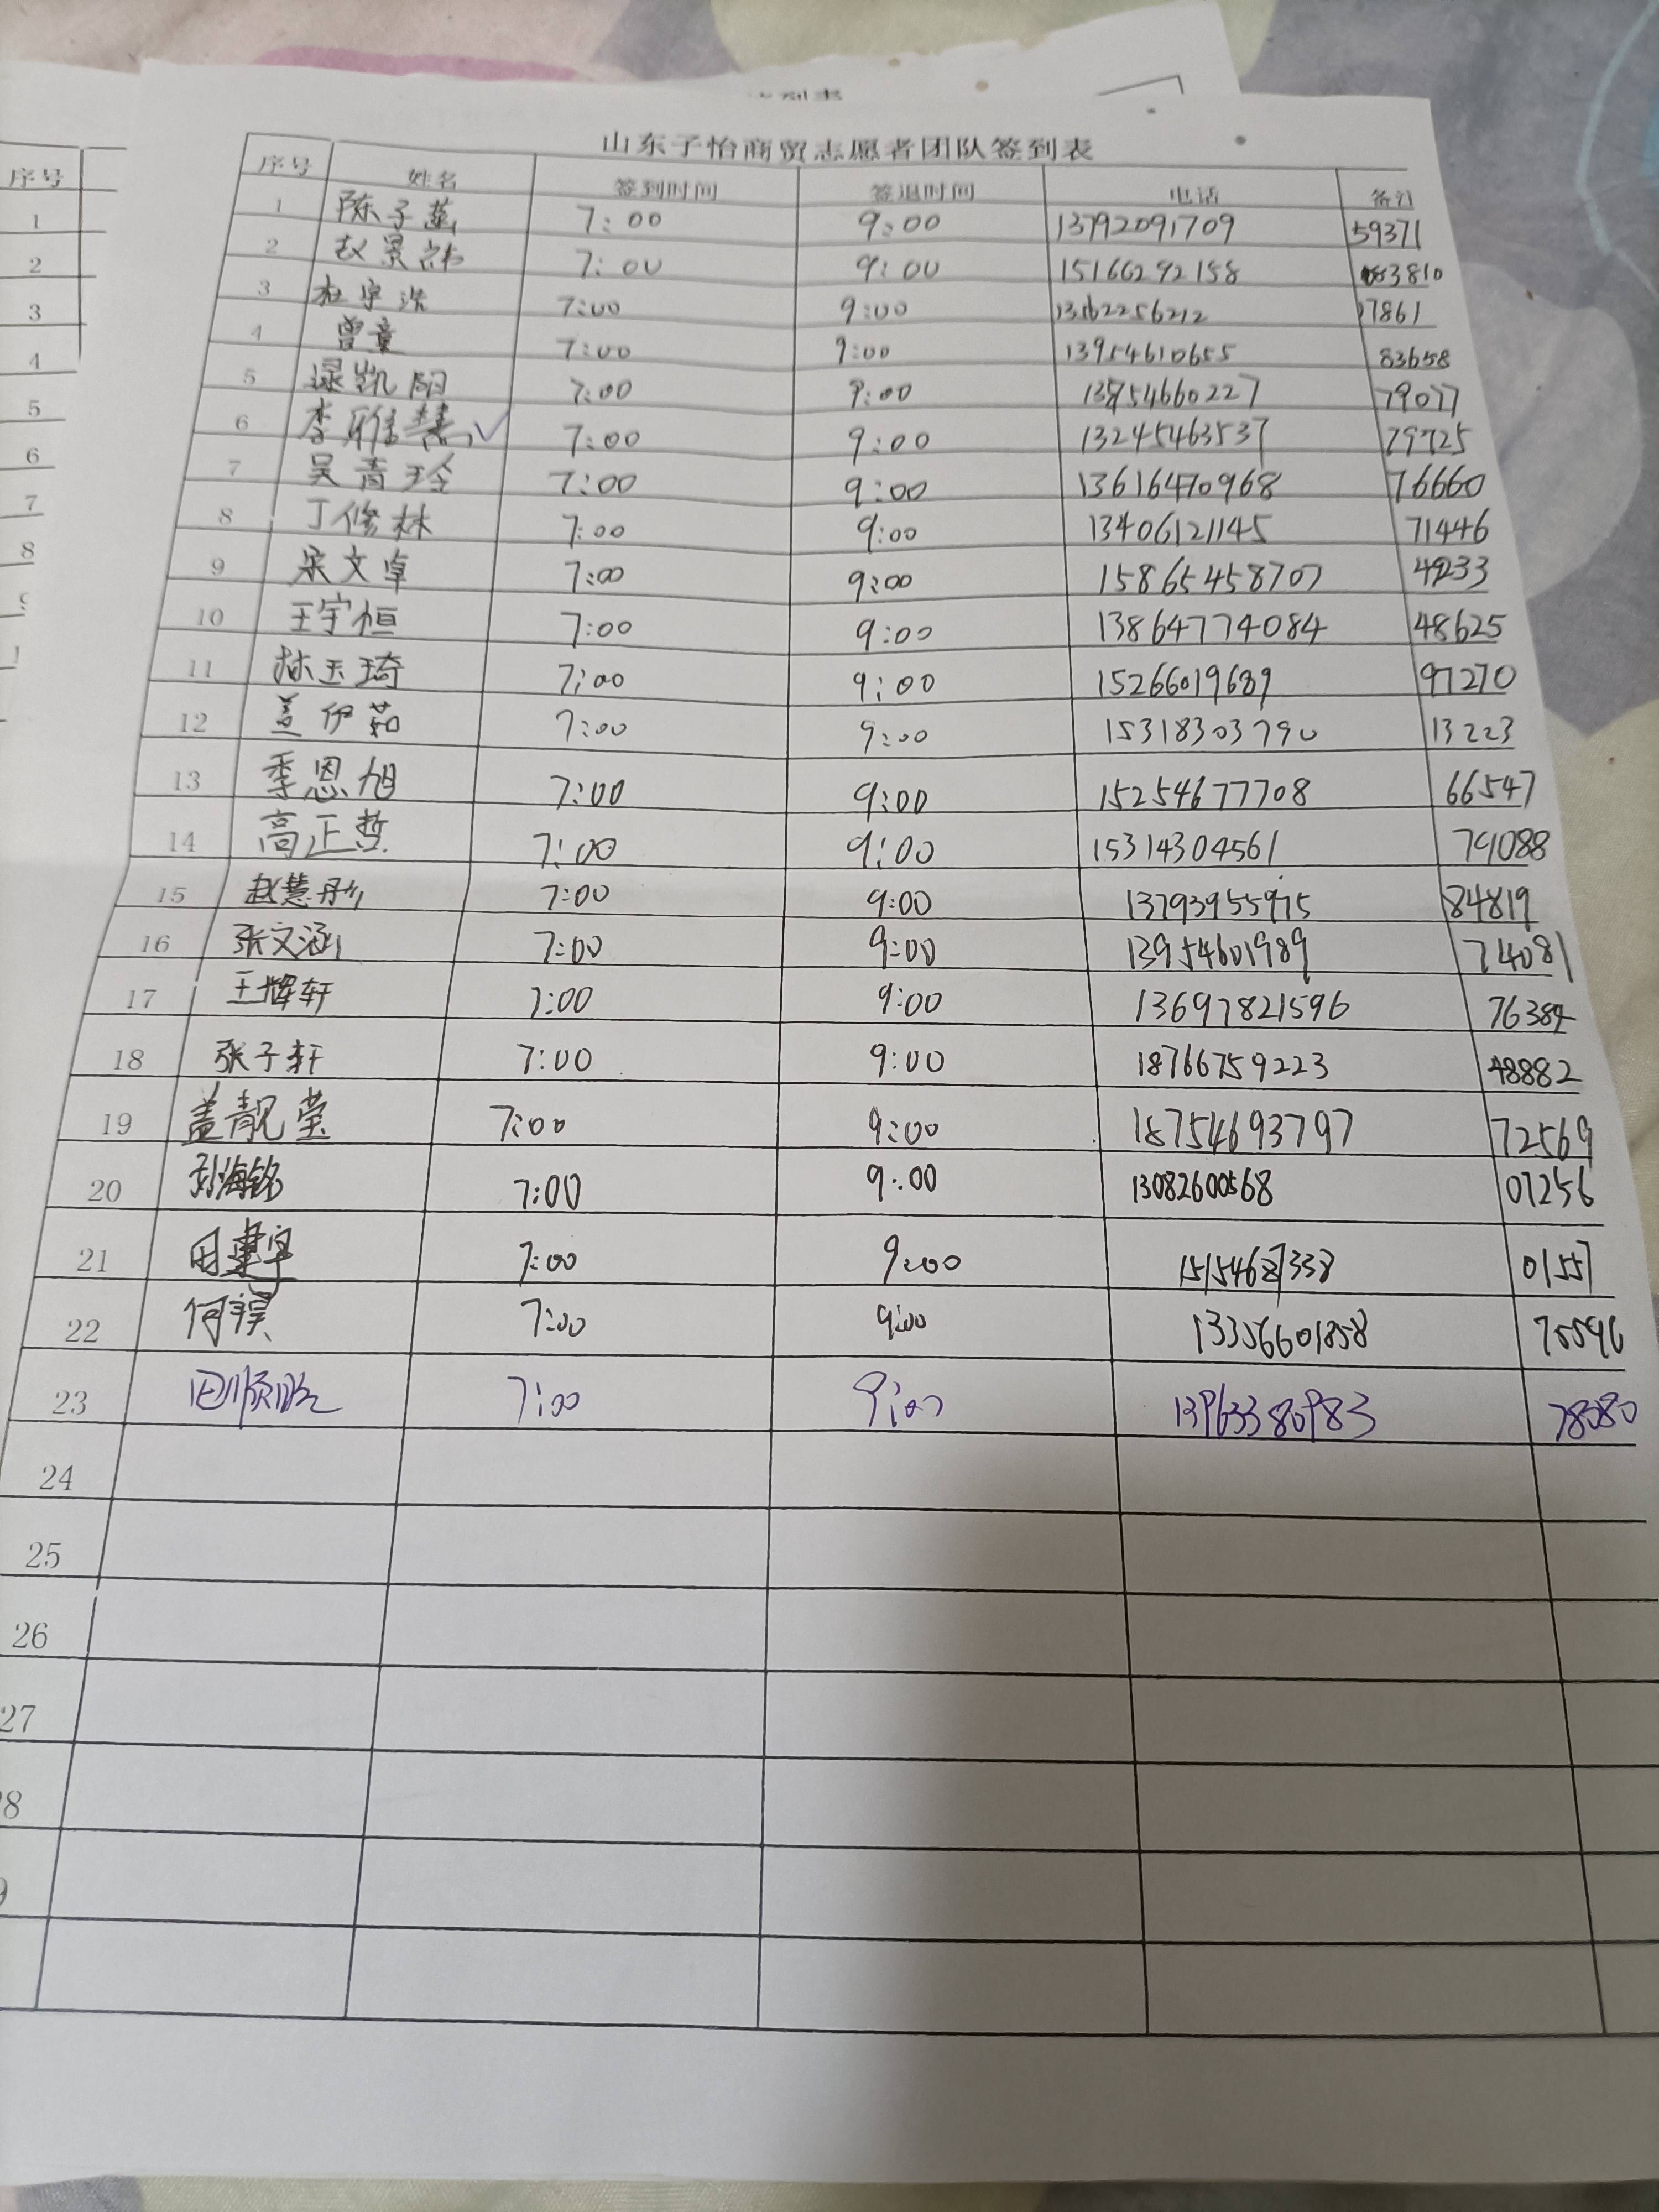 山东子怡商贸志愿者团队签到表
序号 姓名 签到时间 签退时间 电话 备注
1 陈子菡 7:00 9:00 13792091709 59371
2 赵景祎 7:00 9:00 15166292158 3810
3 杜宇浩 7:00 9:00 7861
4 曾童 7:00 9:00 13954610655 83658
5 逯凯 7:00 9:00 13954660227 79077
6 李雅慧 7:00 9:00 13245463537 79725
7 吴青玲 7:00 9:00 13616470968 76660
8 丁修林 7:00 9:00 13406121145 71446
9 宋文卓 7:00 9:00 15865458707 49233
10 王宇恒 7:00 9:00 13864774084 48625
11 林玉琦 7:00 9:00 15266019689 97270
12 盖伊茹 7:00 9:00 15318303790 13223
13 季恩旭 7:00 9:00 15254677708 66547
14 高正哲 7:00 9:00 15314304561 79088
15 赵慧彤 7:00 9:00 13793955975 84819
16 张文涵 7:00 9:00 13954601989 74081
17 王辉轩 7:00 9:00 13697821596 76384
18 张子轩 7:00 9:00 18766759223 48882
19 盖靓莹 7:00 9:00 18754693797 72569
20 孙海铭 7:00 9:00 13082600568 07256
21 7:00 9:00 01557
22 何 7:00 9:00 13356601858 70596
23 田顺 7:00 9:00 13963380983 78080
24
25
26
27
序号
1
2
3
4
5
6
7
8